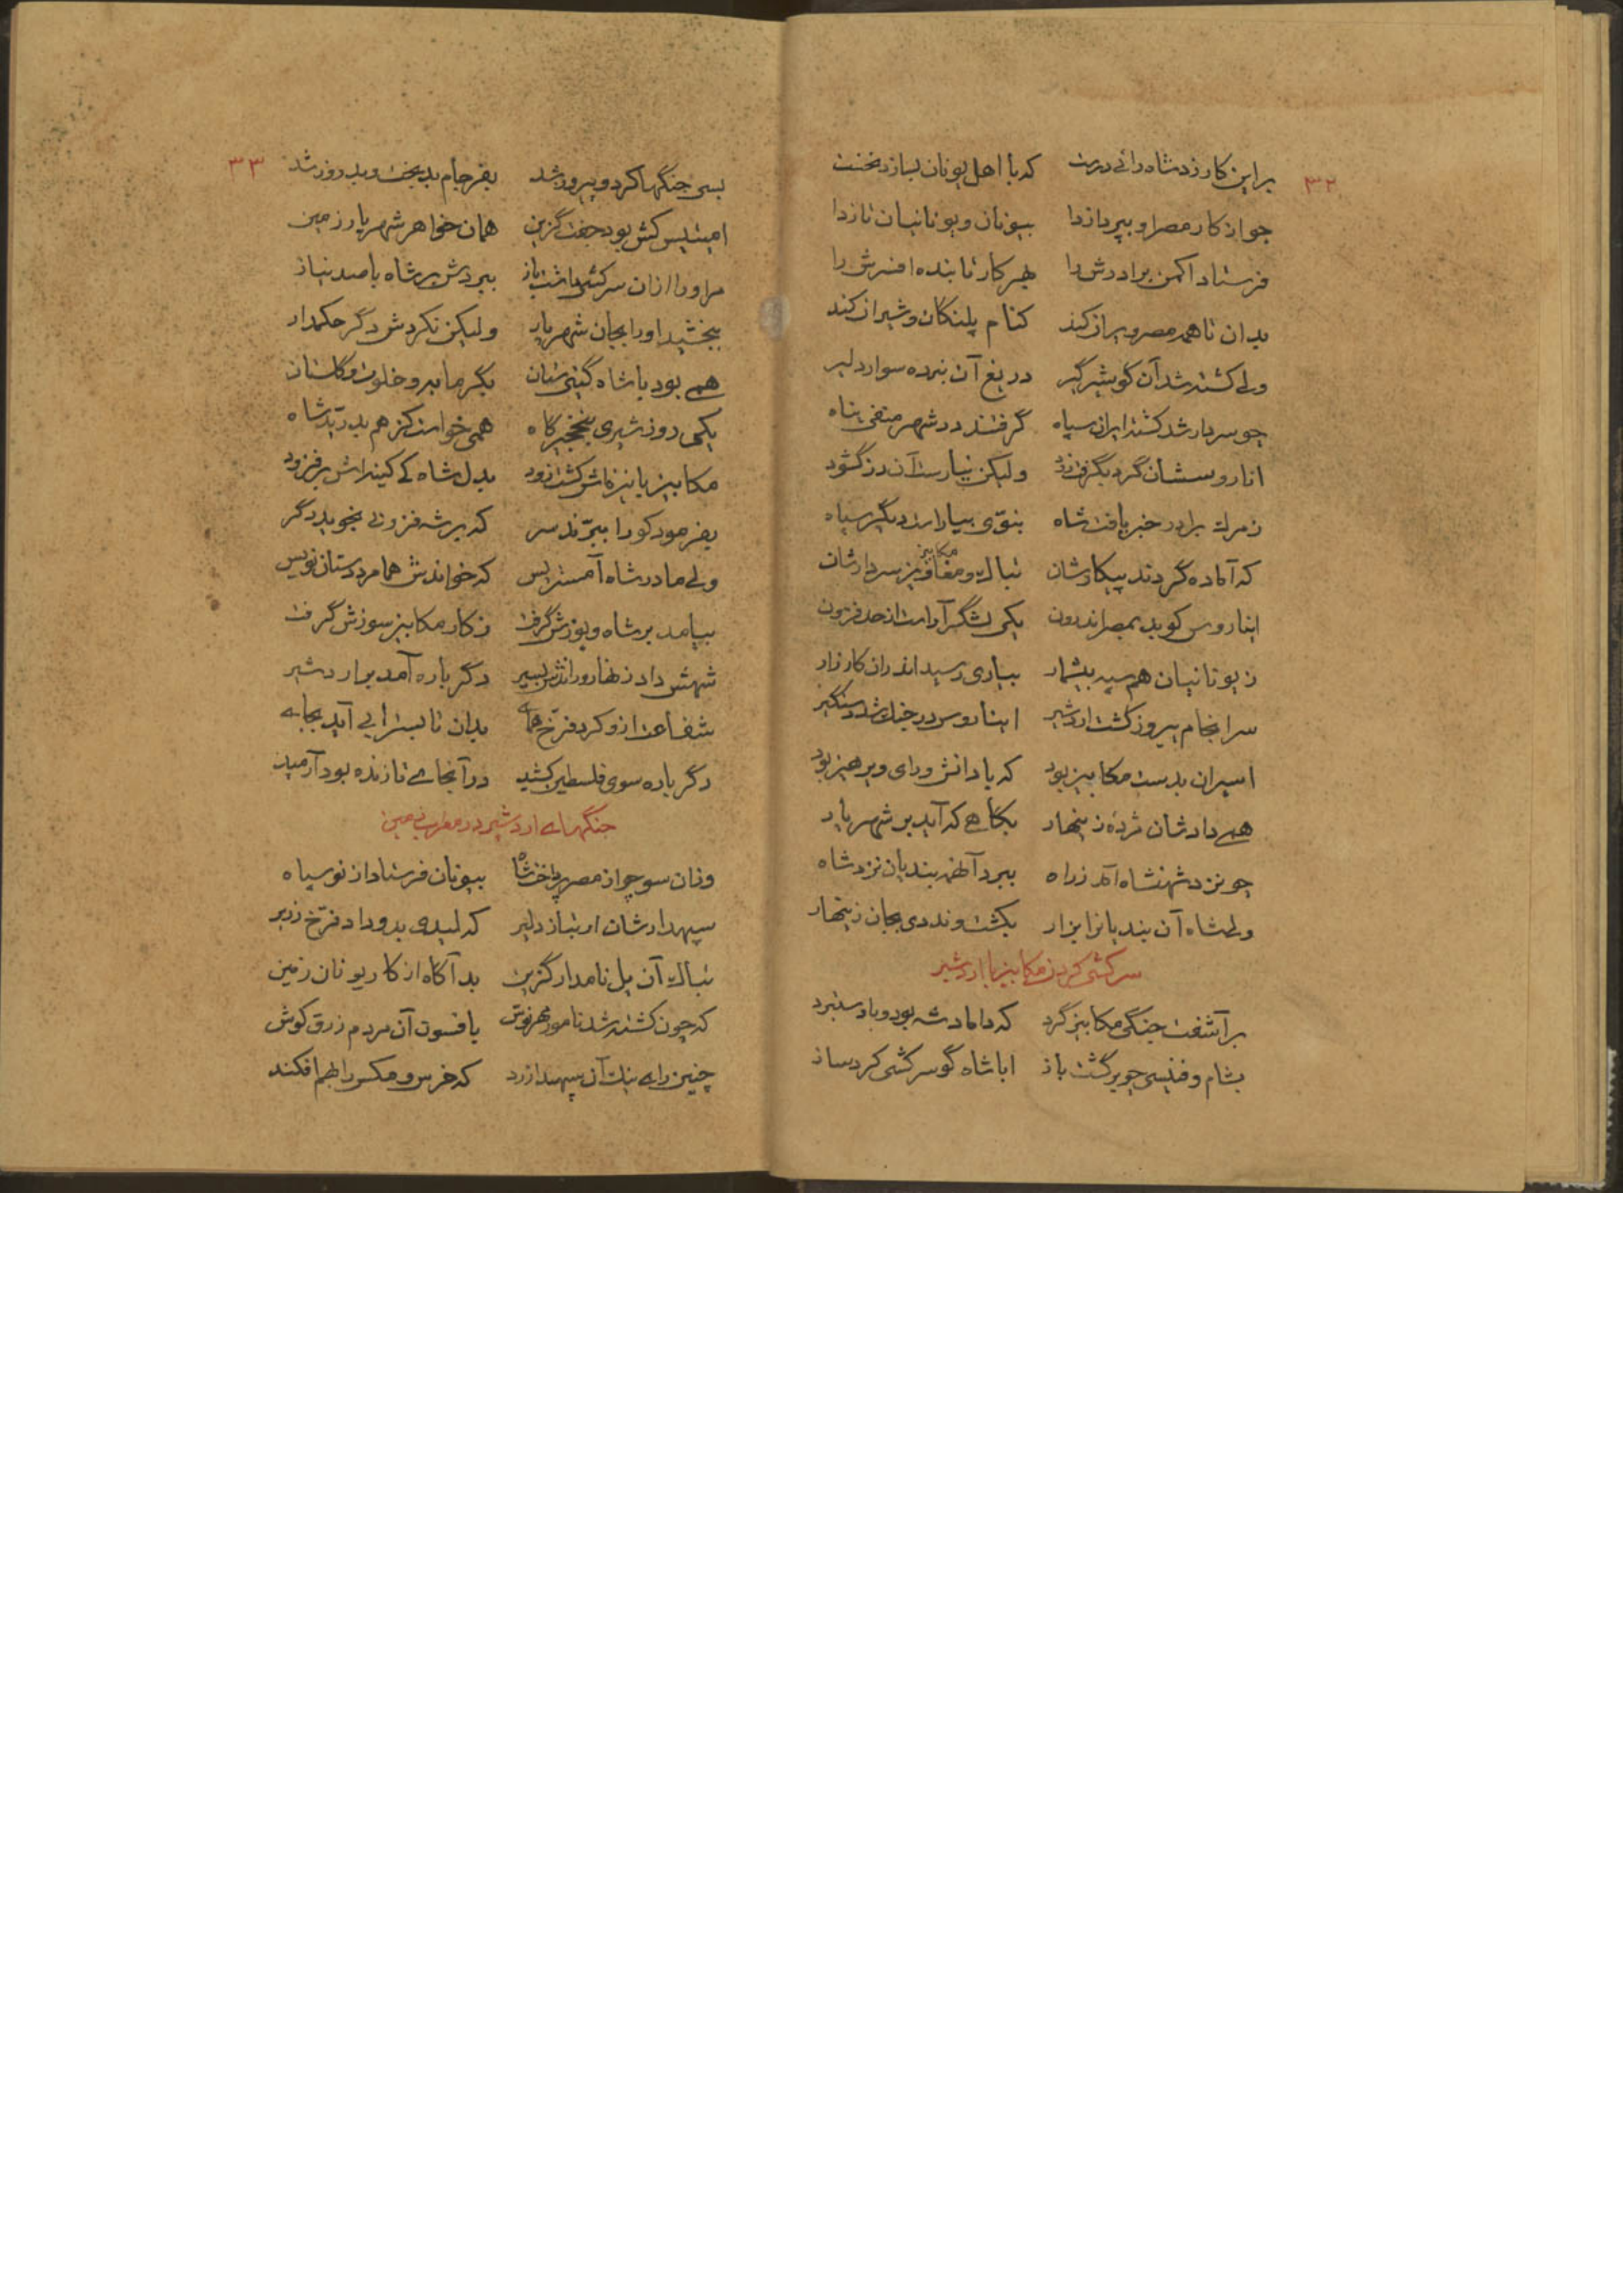 ۳۲
بر این کار زد شاه رائی درست که با اهل یونان بسازد نخست
چو از کار مصر او بپردازدا بیونان و یونانیان تازدا
فرستاد اکمن برادرش را بهر کار تابنده افسرش را
بدان تا همه مصر ویران کند کنام پلنگان و شیران کند
ولی کشته شد آن گو شیرگیر دریغ آن نبرده سوار دلیر
چو سردار شد کشته ایران سپاه گرفتند در شهر منفی پناه
اناروسشان گرد بگرفت زود ولیکن نیارست آن دز گشود
ز مرک برادر خبر یافت شاه بنوّی بیاراست دیگر سپاه
که آماده گردند پیکارشان تباله و مغافیز سردارشان
مکابیز
ایناروس کو بد بمصر اندرون یکی لشگر آراست از حد فزون
ز یونانیان هم سپه بیشمار بیاری رسید اندران کارزار
سرانجام پیروز گشت اردشیر ایناروس در جنک شد دستگیر
اسیران بدست مکابیز بود که با دانش و رای و پرهیز بود
همی دادشان مژدهٔ زینهار بگاهی که آید بر شهریار
چو نزد شهنشاه آمد ز راه ببرد آنهمه بندیان نزد شاه
ولی شاه آن بندیانرا بزار بکشت و نددی بجان زینهار
سرکشی کردن مکابیز با اردشیر
برآشفت جنگی مکابیز گرد که داماد شه بود و با دستبرد
بشام و فنیسی چو برگشت باز ابا شاه گو سرکشی کرد ساز
۳۳
بسی جنگها کرد و پیروز شد بفرجام بدبخت و بدروز شد
امیتیس کش بود جفت گزین همان خواهر شهریار زمین
مر او را ازان سرکشی داشت باز ببردش بر شاه با صد نیاز
ببخشید او را بجان شهریار ولیکن نکردش دگر حکمدار
همی بود با شاه گیتی ستان بگرمابه و خلوت و گلستان
یکی روز شیری بنخجیرگاه همی خواست کز هم بدرّد شاه
مکابیز با نیزه‌اش کشت زود بدل شاه کی کینه‌اش برفزود
بفرمود کو را ببرّند سر که بر شه فزونی نجوید دگر
ولی مادر شاه آمستریس که خواندش هما مرد دستان نویس
بیامد بر شاه و پوزش گرفت ز کار مکابیز سوزش گرفت
شهش داد زنهار و راندش بسیر دگرباره آمد بر اردشیر
شفاعت ازو کرد فرّخ همای بدان تا بسترابی آید بجای
دگرباره سوی فلسطین کشید در آنجای تا زنده بود آرمید
جنگهای اردشیر در مغرب زمین
وزان سو چو از مصر پرداخت شاه بیونان فرستاد از نو سپاه
سپهدارشان ارتباز دلیر که لیدی بدو داد فرّخ زریر
تباله آن یل نامدار گزین بد آگاه از کار یونان زمین
که چون کشته شد نامور مهرنوش بافسون آن مردم زرق کوش
چنین رای بنک آن سپهدار زد که خرس و مکس را بهم افکند